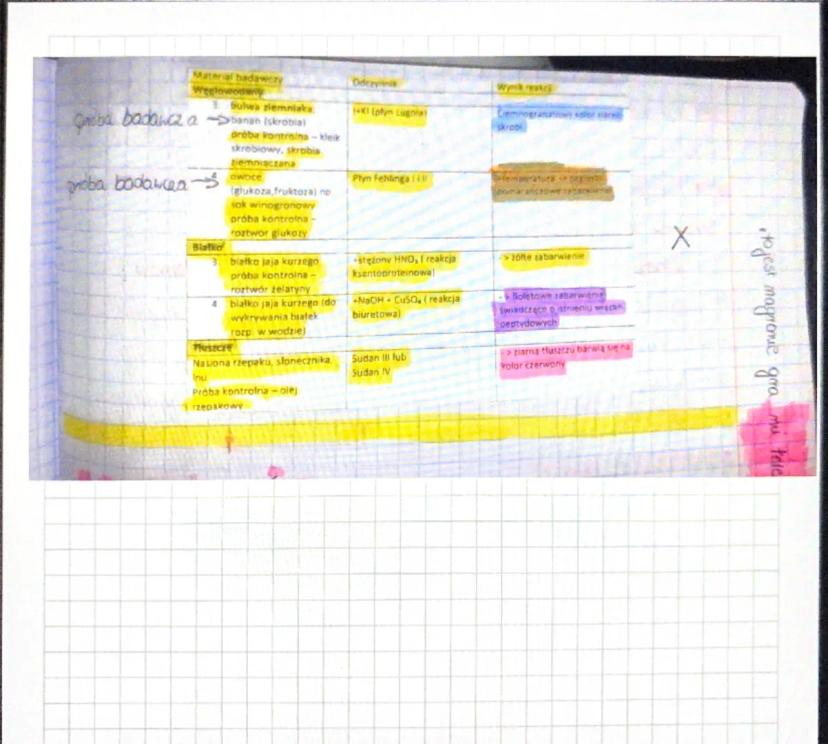 Materiał badawczy
Odczynnik
Wynik reakcji
Węglowodany
próba badawcza ->
bulwa ziemniaka,
banan (skrobia)
próba kontrolna – kleik
skrobiowy, skrobia
ziemniaczana
I+KI (płyn Lugola)
Ciemnogranatowy kolor
skrobi
próba badawcza ->
owoce
(glukoza,fruktoza) np
sok winogronowy
próba kontrolna –
roztwór glukozy
Płyn Fehlinga I i II
temperatura ->
pomarańczowe zabarwienie
Białko
3 białko jaja kurzego
próba kontrolna –
roztwór żelatyny
+stężony HNO₃ ( reakcja
ksantoproteinowa)
-> żółte zabarwienie
4 białko jaja kurzego (do
wykrywania białek
rozp. w wodzie)
+NaOH + CuSO₄ ( reakcja
biuretowa)
-> fioletowe zabarwienie
(świadczące o istnieniu wiązań
peptydowych
Tłuszcze
Nasiona rzepaku, słonecznika,
lnu
Próba kontrolna – olej
rzepakowy
Sudan III lub
Sudan IV
-> ziarna tłuszczu barwią się na
kolor czerwony
X